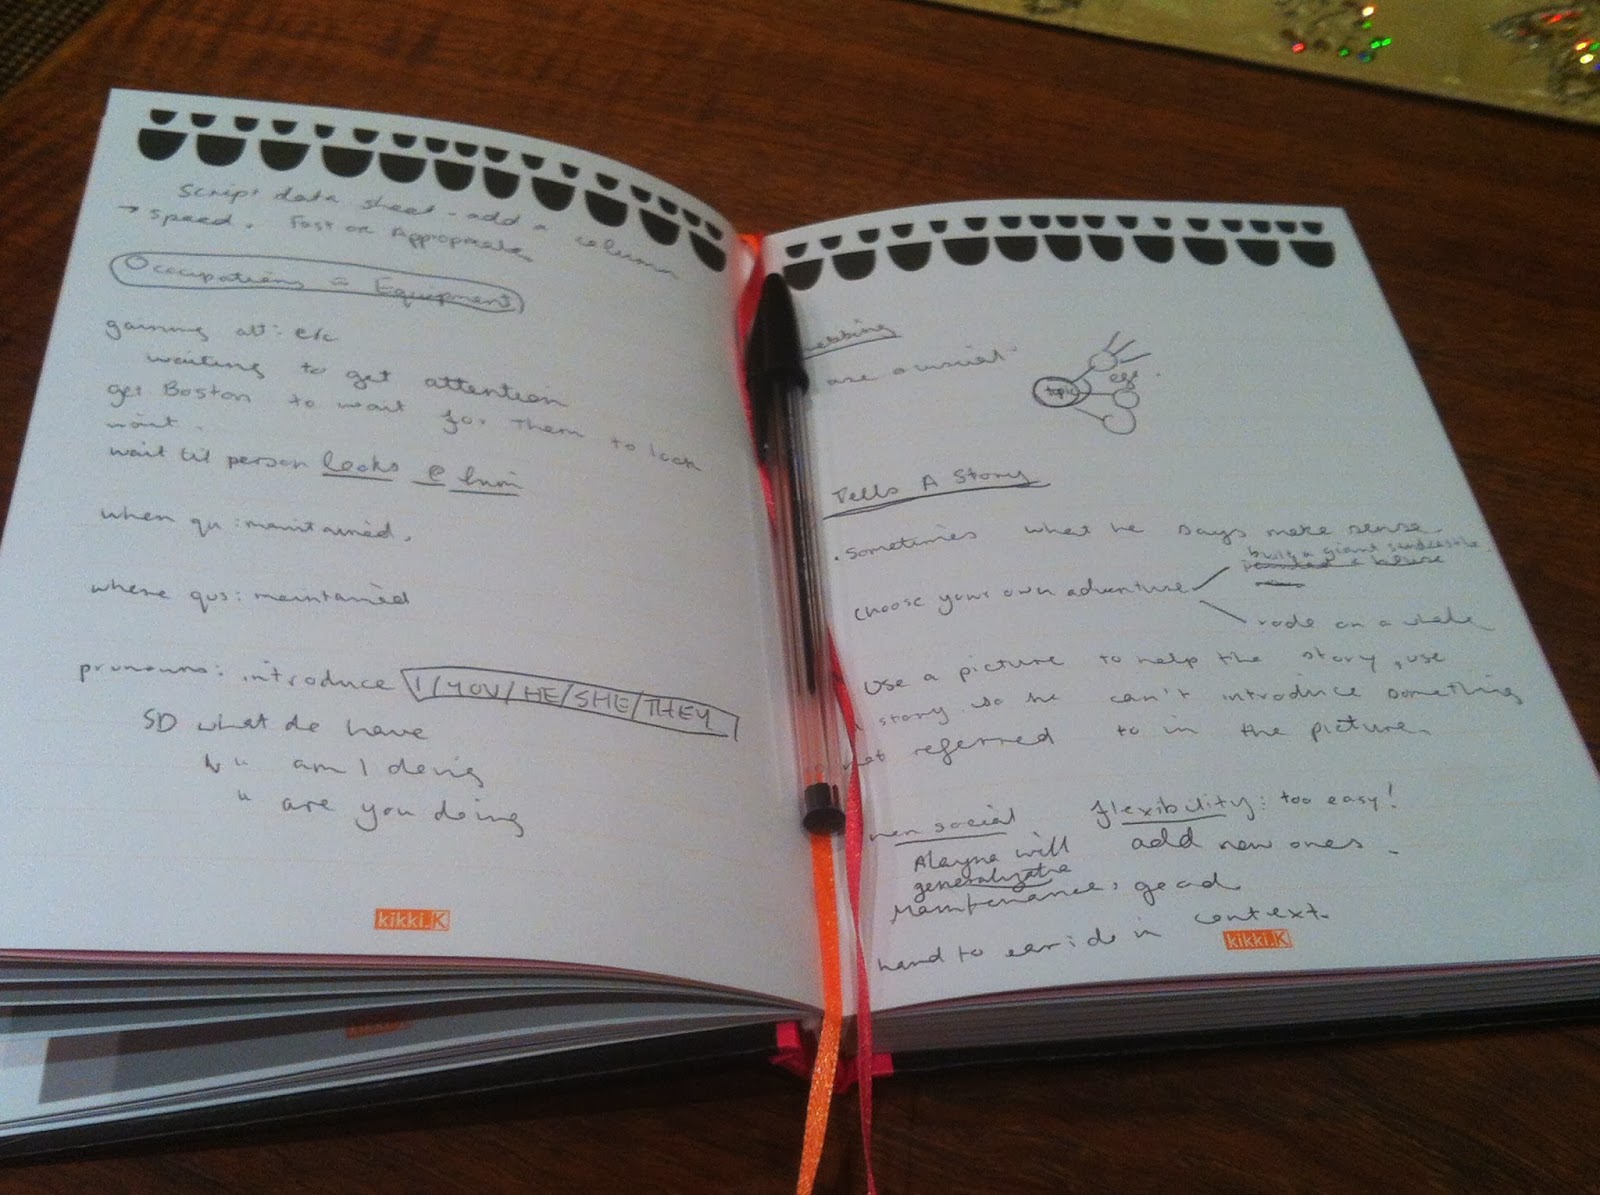 Script data sheet - add a column
→ speed. Fast or Appropriate
Occupations = Equipment
gaining att: etc
waiting to get attention
get Boston to wait for Them to look
wait.
wait til person looks @ him
when qu: maintained.
where qus: maintained
pronouns: introduce I/YOU/HE/SHE/THEY
SD what do have
" am I doing
" are you doing
kikki.K
use a visual
topic
Tells A Story
. Sometimes what he says make sense.
build a giant sandcastle
choose your own adventure
rode on a whale
Use a picture to help the story, use
story so he can't introduce something
not referred to in the picture.
non social flexibility: too easy!
Alayna will add new ones.
generalization
Maintenance: good
hard to do in context.
kikki.K